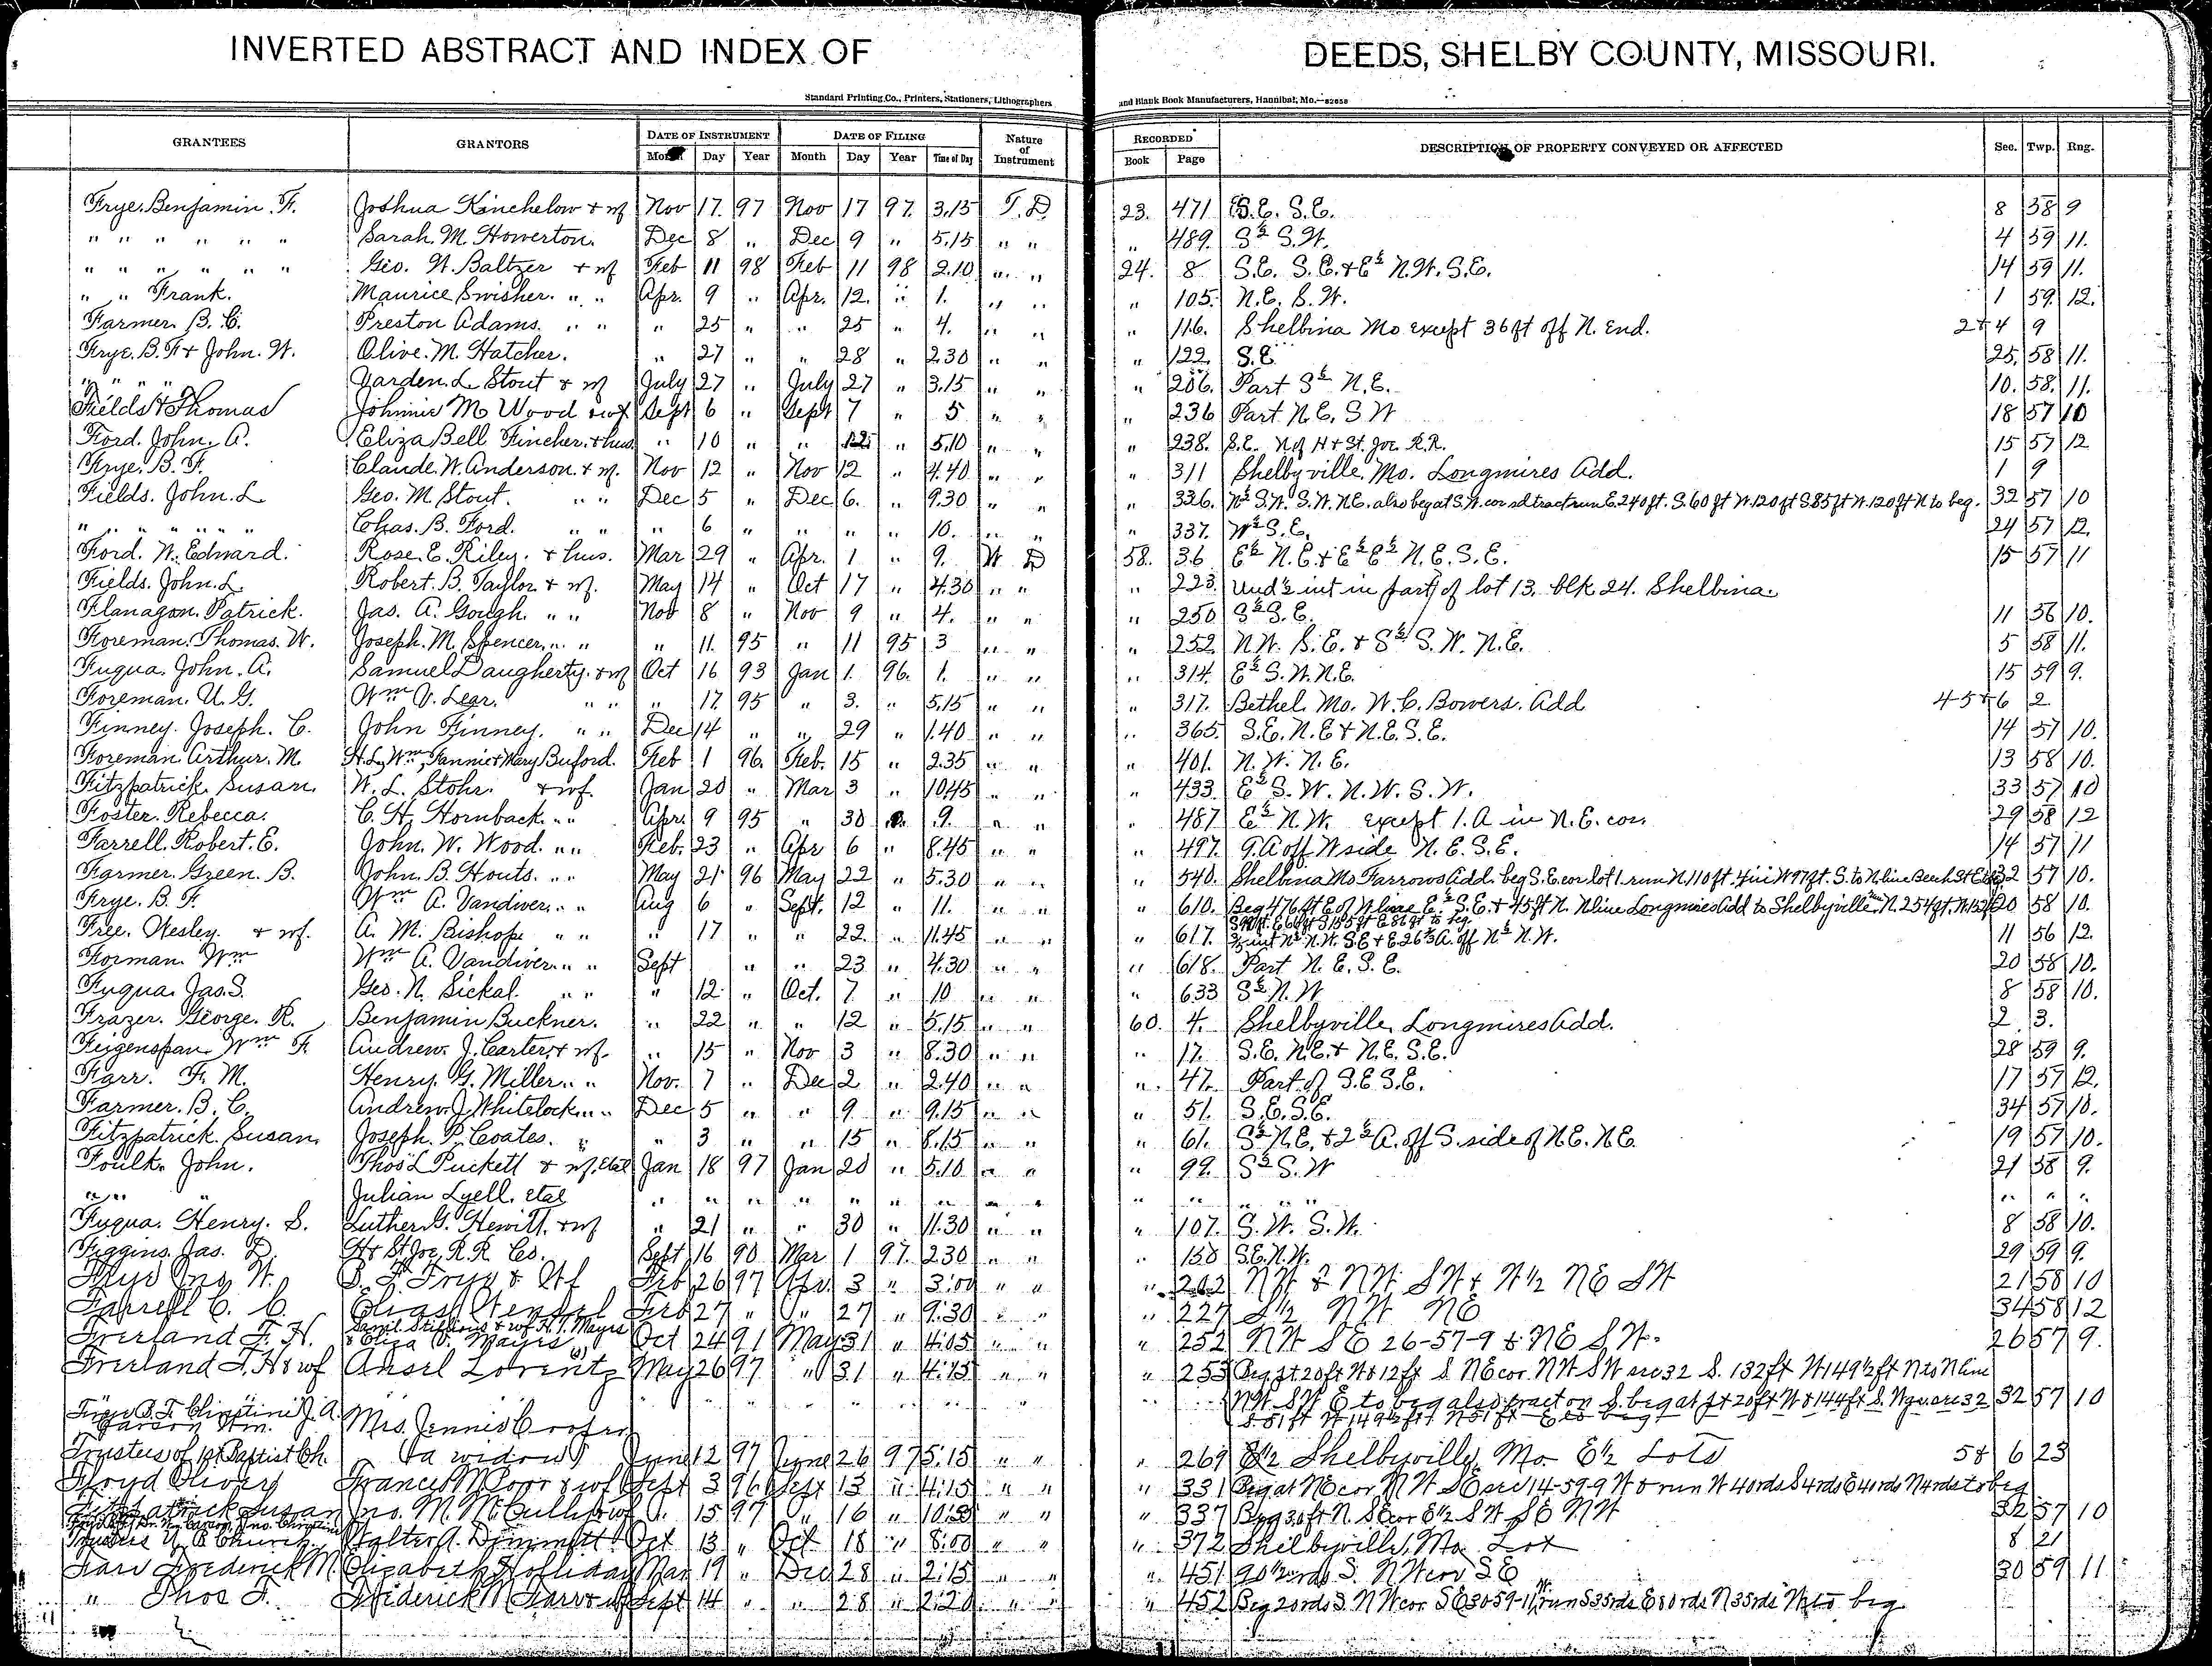 INVERTED ABSTRACT AND INDEX OF DEEDS, SHELBY COUNTY, MISSOURI.
Standard Printing Co., Printers, Stationers, Lithographers and Blank Book Manufacturers, Hannibal, Mo.—82658
GRANTEES GRANTORS DATE OF INSTRUMENT DATE OF FILING Nature of Instrument RECORDED DESCRIPTION OF PROPERTY CONVEYED OR AFFECTED Sec. Twp. Rng.
Month Day Year Month Day Year Time of Day Book Page
Frye. Benjamin. F. Joshua Kinchelow & wf Nov 17. 97 Nov 17 97. 3.15 T. D. 23. 471 S.E. S.E. 8 58 9
" " " " " " Sarah. M. Howerton. Dec 8 " Dec 9 " 5.15 " " " 489. S½ S.W. 4 59 11.
" " " " " " Geo. W. Baltzer & wf Feb 11 98 Feb 11 98 2.10 " " 24. 8 S.E. S.E. & E½ N.W. S.E. 14 59 11.
" " Frank. Maurice Swisher. " " Apr. 9 " Apr. 12. " 1. " " " 105. N.E. S.W. 1 59. 12.
Farmer. B. C. Preston Adams. " " " 25 " " 25 " 4. " " " 116. Shelbina Mo except 36 ft off N. End. 2&4 9
Frye. B. F. & John. W. Olive. M. Hatcher. " 27 " " 28 " 2.30 " " " 122. S.E. 25. 58 11.
" " " " Jarden. L. Stout & wf July 27 " July 27 " 3.15 " " " 206. Part S½ N.E. 10. 58. 11.
Fields & Thomas Johnnie M Wood & wf Sept 6 " Sept 7 " 5 " " " 236 Part N.E. S W 18 57 10
Ford. John. A. Eliza Bell Fincher. & hus. " 10 " " 12 " 5.10 " " " 238. S.E. N of H & St. Joe R.R. 15 57 12
Frye. B. F. Claude. W. Anderson. & wf. Nov 12 " Nov 12 " 4.40 " " " 311 Shelbyville. Mo. Longmires Add. 1 9
Fields. John. L Geo. M. Stout. " " Dec 5 " Dec 6. " 9.30 " " " 336. N½ S.W. S.W. N.E. also beg at S.W. cor sd tract run E. 240 ft. S. 60 ft W. 120 ft S 85 ft W. 120 ft N to beg. 32 57 10
" " " " " " Chas. B. Ford. " " " 6 " " " " 10. " " " 337. W½ S.E. 24 57 12.
Ford. W. Edward. Rose. E. Riley. & hus. Mar 29 " Apr. 1 " 9. W D 58. 36 E½ N.E. & E½ E½ N.E. S.E. 15 57 11
Fields. John. L. Robert. B. Taylor. & wf. May 14 " Oct 17 " 4.30 " " " 223. Und ½ int in part of lot 13. blk 24. Shelbina.
Flanagan. Patrick. Jas. A. Gough. " " Nov 8 " Nov 9 " 4. " " " 250 S½ S.E. 11 56 10.
Foreman. Thomas. W. Joseph. M. Spencer. " " " 11. 95 " 11 95 3 " " " 252. N.W. S.E. & S½ S.W. N.E. 5 58 11.
Fuqua. John. A. Samuel Daugherty. & wf Oct 16 93 Jan 1. 96. 1. " " " 314. E½ S.W. N.E. 15 59 9.
Foreman. U. G. Wm V. Lear. " " " 17. 95 " 3. " 5.15 " " " 317. Bethel. Mo. W. C. Bowers. Add 4 5&6 2
Finney. Joseph. C. John Finney. " " Dec 14 " " 29 " 1.40 " " " 365. S.E. N.E & N.E. S.E. 14 57 10.
Foreman. Arthur. M. H. L. Wm, Fannie & Mary Buford. Feb 1 96. Feb. 15 " 2.35 " " " 401. N.W. N.E. 13 58 10.
Fitzpatrick. Susan. W. L. Stohr. & wf. Jan 20 " Mar 3 " 10.45 " " " 433 E½ S.W. N.W. S.W. 33 57 10
Foster. Rebecca. C. H. Hornback. " " Apr. 9 95 " 30 9. " " " 487 E½ N.W. except 1. A in N.E. cor. 29 58 12
Farrell. Robert. E. John. W. Wood. " " Feb. 23 " Apr 6 " 8.45 " " " 497. 9. A off W side N.E. S.E. 14 57 11
Farmer. Green. B. John. B. Houts. " " May 21 96 May 22 " 5.30 " " " 540. Shelbina Mo Farrows Add. beg S.E. cor lot 1. run N. 110 ft. 4 in W 97 ft. S. to N line Beech St 32 57 10.
Frye. B. F. Wm A. Vandiver. " " Aug 6 " Sept. 12 " 11. " " " 610. Beg 476 ft E of W line E½ S.E. & 45 ft N. N line Longmires Add to Shelbyville N. 254 ft. 20 58 10.
Free. Wesley. & wf. A. M. Bishop " " " 17 " " 22. " 11.45 " " " 617. N½ N.W. S.E & E 26⅔ A. off N½ N.W. 11 56 12.
Forman. Wm Wm A. Vandiver. " " Sept " " 23 " 4.30 " " " 618. Part N.E. S.E. 20 58 10.
Fuqua. Jas. S. Geo. N. Sickal. " " " 12. " Oct. 7 " 10 " " " 633 S½ N.W 8 58 10.
Frazer. George. R. Benjamin Buckner. " 22 " " 12 " 5.15 " " 60. 4. Shelbyville. Longmires Add. 2. 3.
Feigenspan. Wm F. Andrew. J. Carter & wf. " 15 " Nov 3 " 8.30 " " " 17. S.E. N.E. & N.E. S.E. 28 59 9.
Farr. F. M. Henry. G. Miller. " " Nov. 7 " Dec 2 " 2.40 " " " 47. Part of S.E S.E. 17 57 12.
Farmer. B. C. Andrew. J. Whitelock. " " Dec 5 " " 9 " 9.15 " " " 51. S.E. S.E. 34 57 10.
Fitzpatrick. Susan. Joseph. P. Coates. " " 3 " " 15 " 8.15 " " " 61. S½ N.E. & 2½ A. off S. side of N.E. N.E. 19 57 10.
Foulk. John. Thos L Puckett & wf. etal Jan 18 97 Jan 20 " 5.10 " " " 99. S½ S.W 21 58 9.
" " " Julian Lyell. etal " " " " " " " " " " " " " " " " "
Fuqua. Henry. S. Luther. G. Hewitt. & wf " 21 " " 30 " 11.30 " " " 107. S.W. S.W. 8 58 10.
Figgins. Jas. D. H & St Joe. R.R Co. Sept 16 90 Mar 1 97. 2.30 " " " 150 S.E. N.W. 29 59 9.
Frye Jno. W. B. F. Frye & Wf Feb 26 97 Apr. 3 " 3:00 " " " 202 NW & NW SW & W½ NE SW 21 58 10
Farrell C. C. Elias Wensel Feb 27 " " 27 " 9:30 " " " 227 S½ NW NE 34 58 12
Freeland F. H. Saml. Stiffions & wf H. T. Mayes & Eliza Mayes Oct 24 91 May 31 " 4:05 " " " 252 NW SE 26-57-9 & NE SW. 26 57 9.
Freeland F. H & wf Ansel Lorentz May 26 97 " 31 " 4:15 " " " 253 Beg pt 20 ft W & 12 ft S. NE cor. NW SW sec 32 S. 132 ft W 149½ ft N to N line
NW SW E to beg also tract on S. beg at pt 20 ft W & 144 ft S. sec 32 32 57 10
S 51 ft W 149½ ft N 51 ft E to beg
Frye B. F. Christine J. A. Mrs. Jennie Cooper
Carson Wm.
Trustees of 1st Baptist Ch. (a widow) June 12 97 June 26 97 5:15 " " " 269 Shelbyville, Mo E½ Lots 5& 6 23
Floyd Oliver Frances M Poor & wf Sept 3 96 Sept 13 " 4:15 " " " 331 Beg at NE cor NW SE sec 14-59-9 W & run W 40 rds S 4 rds E 40 rds N 4 rds to beg
Fitzpatrick Susan Jno. M. McCully & wf " 15 97 " 16 " 10:30 " " " 337 Beg 30 ft N. SE cor E½ SW SE NW 32 57 10
Trustees Church. Walter A. Dimmitt Oct 13 " Oct 18 " 8:00 " " " 372 Shelbyville, Mo. Lot 8 21
Farr Frederick M. Elizabeth Holliday Mar 19 " Dec 28 " 2:15 " " " 451 90½ rds S. NW cor SE 30 59 11
" Thos F. Frederick M Farr & wf Sept 14 " " 28 " 2:20 " " " 452 Beg 20 rds S. NW cor SE 30-59-11 run S 35 rds E 80 rds N 35 rds W to beg